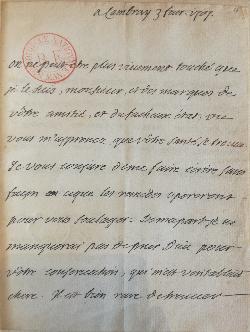 a Cambray 3 fevr. 1707.
On ne peut être plus vivement touché que
je le suis, monsieur, et des marques de
vôtre amitié, et du facheux état où
vous m'aprenez que vôtre santé se trouve.
Je vous conjure de me faire écrire sans
façon en ce que les remedes opereront
pour vous soulager. De ma part je ne
manquerai pas de prier Dieu pour
vôtre conservation, qui m'est veritablement
chere. Il est bien rare de trouver